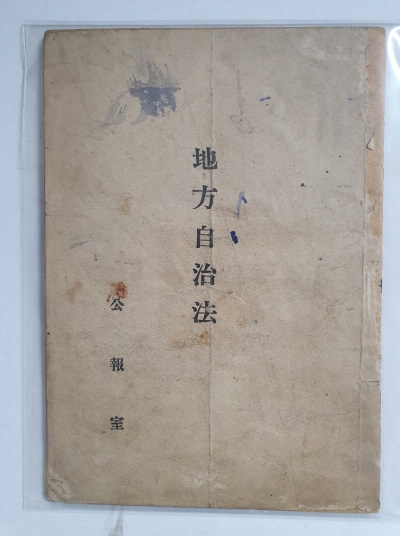 地方自治法
公報室